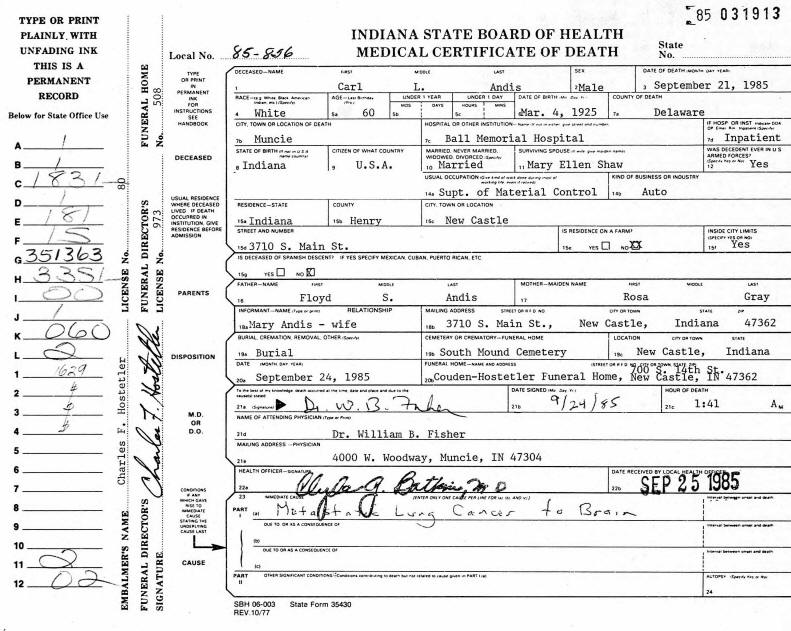 85 031913
TYPE OR PRINT
PLAINLY, WITH
UNFADING INK
THIS IS A
PERMANENT
RECORD
Below for State Office Use
A 1
B 1
C 1831
D 1
E 181
F 15
G 351363
H 3351
I 00
J 1
K 060
L 2
1 1629
2
3
4
5
6
7
8
9
10
11 2
12 02
EMBALMER'S NAME Charles F. Hostetler LICENSE No. 80
FUNERAL DIRECTOR'S SIGNATURE Charles F. Hostetler
FUNERAL DIRECTOR'S LICENSE No. 973
FUNERAL HOME 508
INDIANA STATE BOARD OF HEALTH
MEDICAL CERTIFICATE OF DEATH
Local No. 85-856
State No.
TYPE OR PRINT IN PERMANENT INK FOR INSTRUCTIONS SEE HANDBOOK
DECEASED—NAME FIRST MIDDLE LAST SEX DATE OF DEATH (MONTH DAY YEAR)
1 Carl L. Andis 2 Male 3 September 21, 1985
RACE—(e.g. White, Black, American Indian, etc.) (Specify) AGE—Last Birthday (Yrs.) UNDER 1 YEAR UNDER 1 DAY DATE OF BIRTH (Mo. Day, Yr.) COUNTY OF DEATH
MOS DAYS HOURS MINS
4 White 5a 60 5b 5c 6 Mar. 4, 1925 7a Delaware
CITY, TOWN OR LOCATION OF DEATH HOSPITAL OR OTHER INSTITUTION—Name (If not in either, give street and number) IF HOSP. OR INST. Indicate DOA, OP/Emer. Rm., Inpatient (Specify)
7b Muncie 7c Ball Memorial Hospital 7d Inpatient
DECEASED
STATE OF BIRTH (If not in U.S.A. name country) CITIZEN OF WHAT COUNTRY MARRIED, NEVER MARRIED, WIDOWED, DIVORCED (Specify) SURVIVING SPOUSE (If wife, give maiden name) WAS DECEDENT EVER IN U.S. ARMED FORCES? (Specify Yes or No)
8 Indiana 9 U.S.A. 10 Married 11 Mary Ellen Shaw 12 Yes
USUAL OCCUPATION (Give kind of work done during most of working life, even if retired) KIND OF BUSINESS OR INDUSTRY
14a Supt. of Material Control 14b Auto
USUAL RESIDENCE WHERE DECEASED LIVED IF DEATH OCCURRED IN INSTITUTION, GIVE RESIDENCE BEFORE ADMISSION
RESIDENCE—STATE COUNTY CITY, TOWN OR LOCATION
15a Indiana 15b Henry 15c New Castle
STREET AND NUMBER IS RESIDENCE ON A FARM? INSIDE CITY LIMITS (SPECIFY YES OR NO)
15d 3710 S. Main St. 15e YES ☐ NO ☒ 15f Yes
IS DECEASED OF SPANISH DESCENT? IF YES SPECIFY MEXICAN, CUBAN, PUERTO RICAN, ETC
15g YES ☐ NO ☒
PARENTS
FATHER—NAME FIRST MIDDLE LAST MOTHER—MAIDEN NAME FIRST MIDDLE LAST
16 Floyd S. Andis 17 Rosa Gray
INFORMANT—NAME (Type or print) RELATIONSHIP MAILING ADDRESS STREET OR R F D NO CITY OR TOWN STATE ZIP
18a Mary Andis - wife 18b 3710 S. Main St., New Castle, Indiana 47362
DISPOSITION
BURIAL, CREMATION, REMOVAL, OTHER (Specify) CEMETERY OR CREMATORY—FUNERAL HOME LOCATION CITY OR TOWN STATE
19a Burial 19b South Mound Cemetery 19c New Castle, Indiana
DATE (MONTH DAY YEAR) FUNERAL HOME—NAME AND ADDRESS (STREET OR R F D NO, CITY OR TOWN, STATE, ZIP)
700 S. 14th St.
20a September 24, 1985 20b Couden-Hostetler Funeral Home, New Castle, IN 47362
To the best of my knowledge death occurred at the time, date and place and due to the cause(s) stated DATE SIGNED (Mo. Day. Yr.) HOUR OF DEATH
21a (Signature) Dr. W. B. Fisher 21b 9/24/85 21c 1:41 A M
M.D. OR D.O.
NAME OF ATTENDING PHYSICIAN (Type or Print)
21d Dr. William B. Fisher
MAILING ADDRESS—PHYSICIAN
4000 W. Woodway, Muncie, IN 47304
HEALTH OFFICER—SIGNATURE DATE RECEIVED BY LOCAL HEALTH OFFICER
22a 22b SEP 25 1985
CONDITIONS IF ANY WHICH GAVE RISE TO IMMEDIATE CAUSE STATING THE UNDERLYING CAUSE LAST
CAUSE
23 IMMEDIATE CAUSE [ENTER ONLY ONE CAUSE PER LINE FOR (a), (b), AND (c).] Interval between onset and death
PART I (a) Metastatic Lung Cancer to Brain
DUE TO OR AS A CONSEQUENCE OF Interval between onset and death
(b)
DUE TO OR AS A CONSEQUENCE OF Interval between onset and death
(c)
PART II OTHER SIGNIFICANT CONDITIONS—Conditions contributing to death but not related to cause given in PART I (a) AUTOPSY (Specify Yes or No)
24
SBH 06-003 State Form 35430
REV.10/77